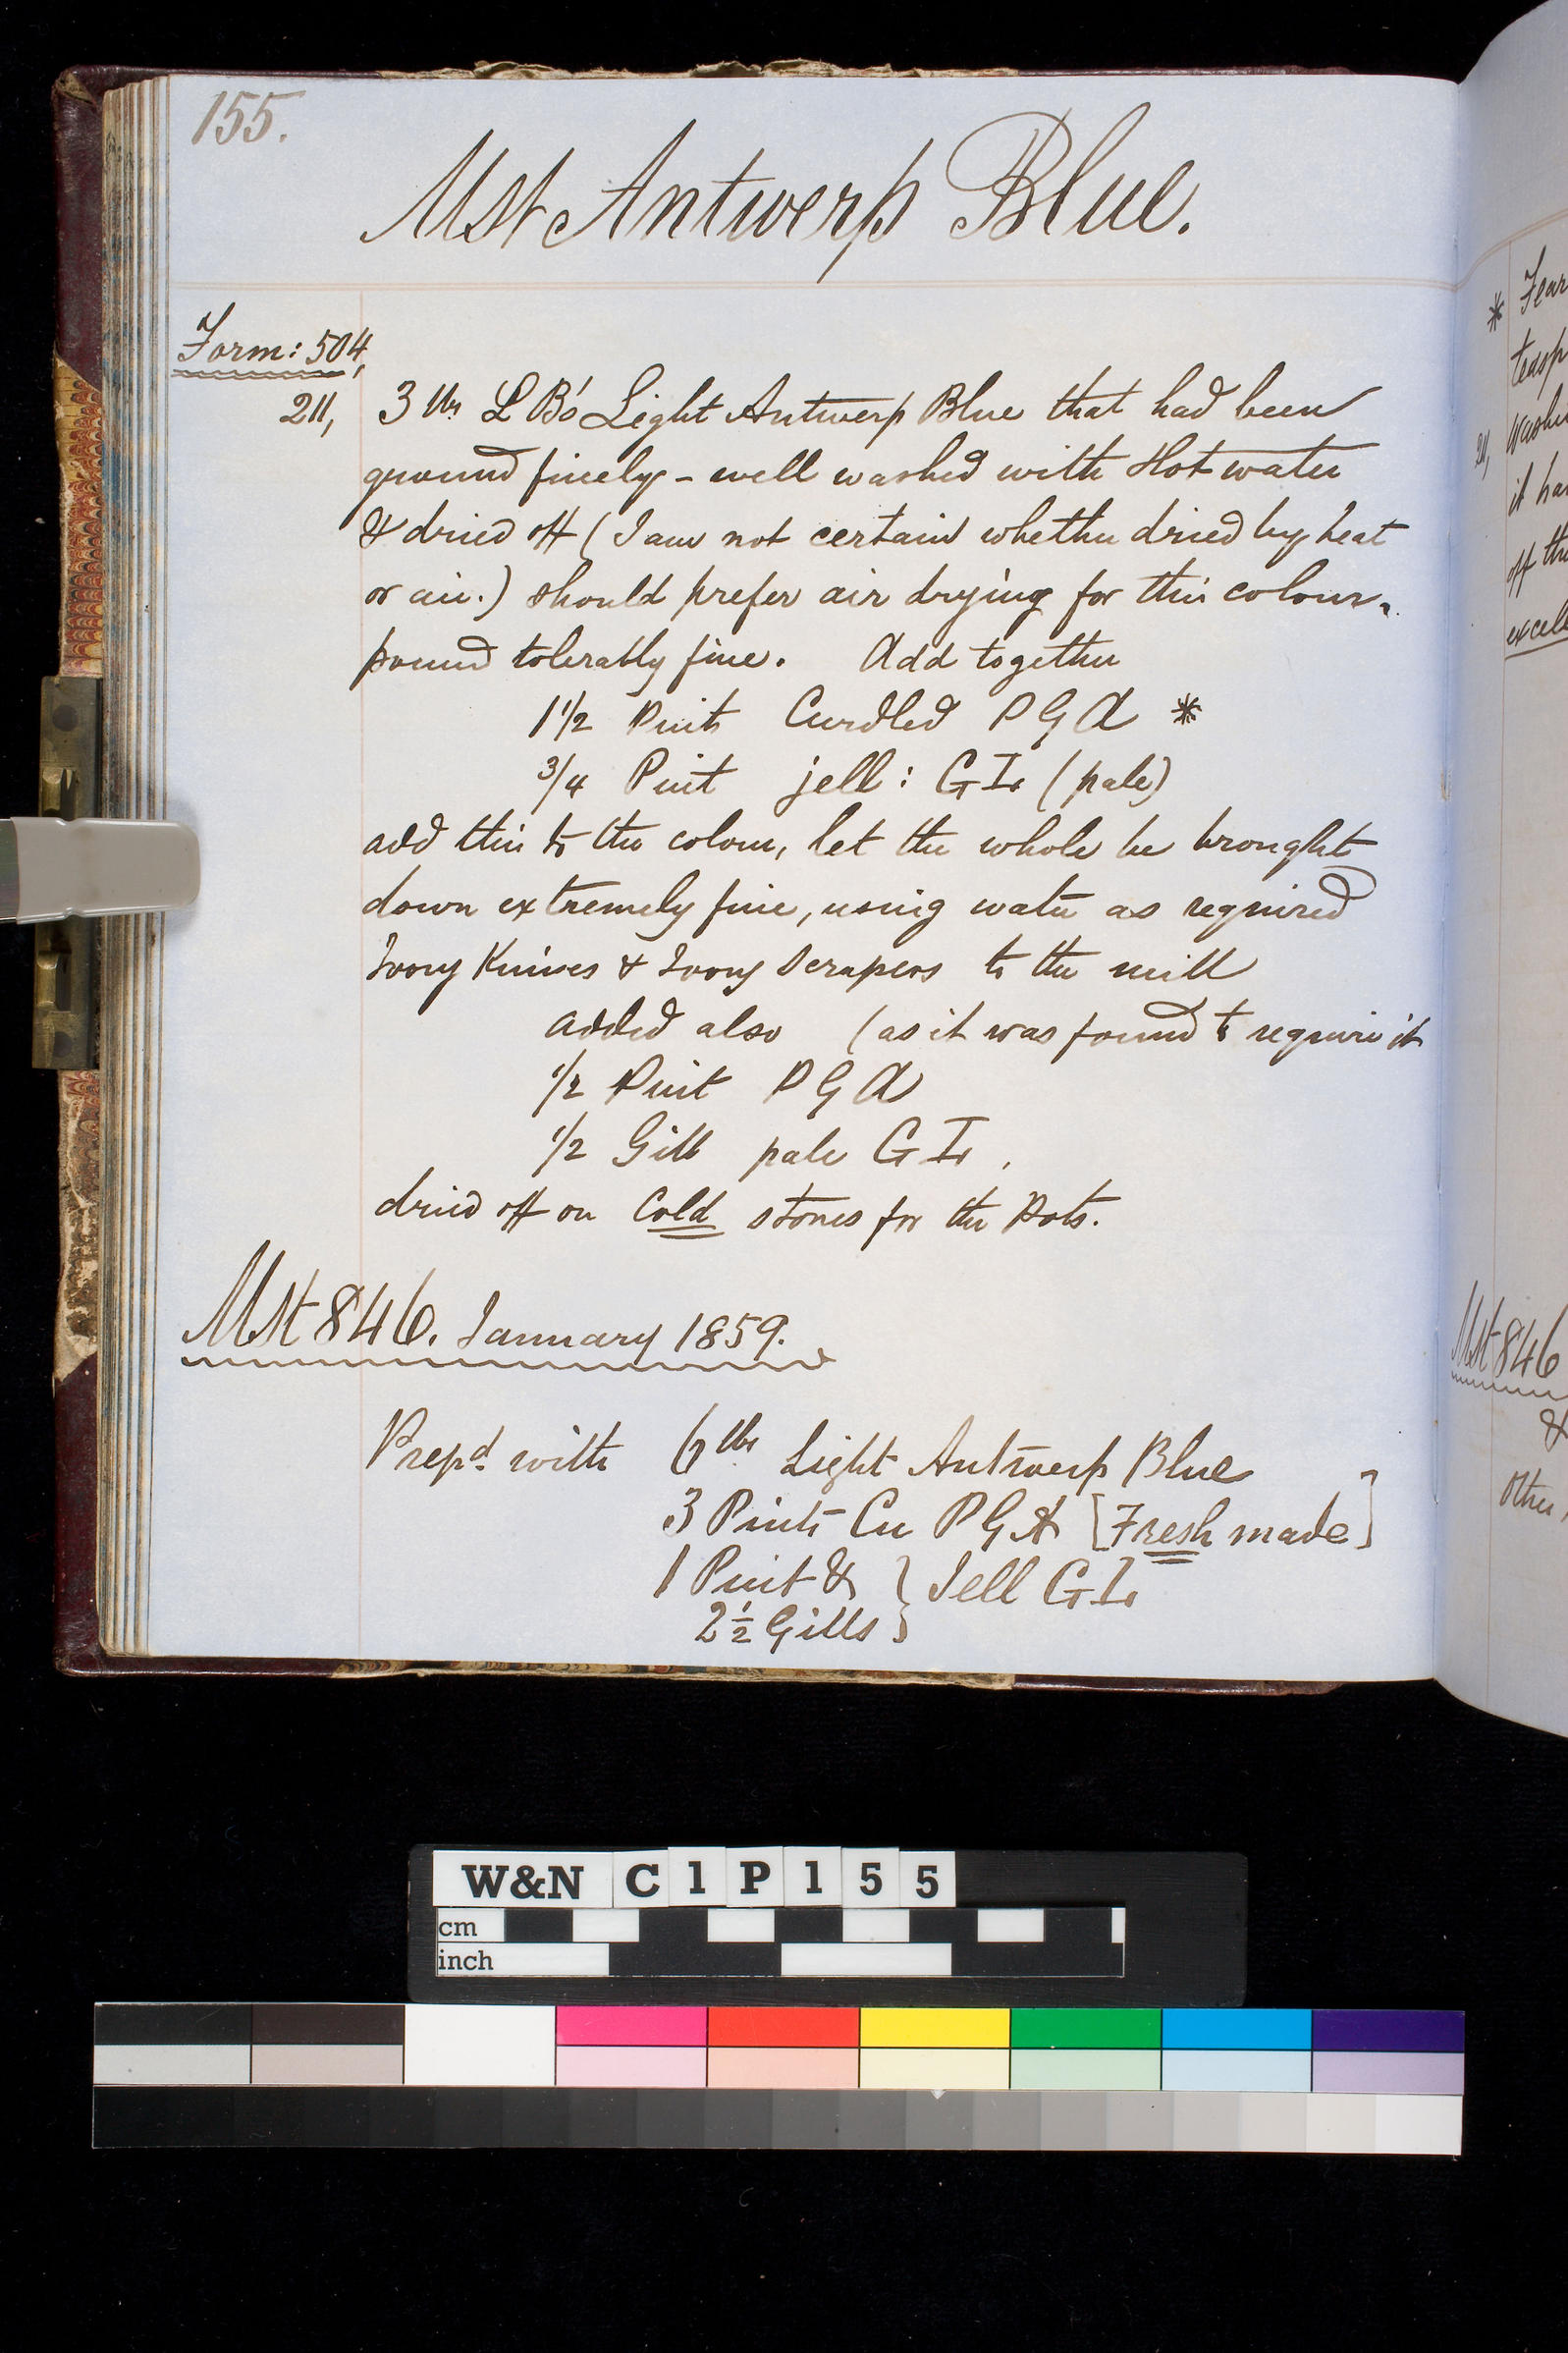 155.
Mst Antwerp Blue.
Form: 504,
211, 3 lbs L B's Light Antwerp Blue that had been
ground finely - well washed with Hot water
& dried off (I am not certain whether dried by heat
or air.) should prefer air drying for this colour.
pound tolerably fine. Add together
1 1/2 Pints Curdled P G A *
3/4 Pint jell: G I, (pale)
add this to the colour, let the whole be brought
down extremely fine, using water as required
Ivory Knives & Ivory Scrapers to the mill
added also (as it was found to require it
1/2 Pint P G A
1/2 Gill pale G I, .
dried off on Cold stones for the Pots.
Mst 846. January 1859.
Prepd. with 6 lbs Light Antwerp Blue
3 Pints Cu P G A [Fresh made]
1 Pint & } Jell G I,
2 1/2 Gills }
* Fear
teasp
Washe
211,
it ha
off the
excel
Mst 846
&
Other,
W&N C1P155
cm
inch